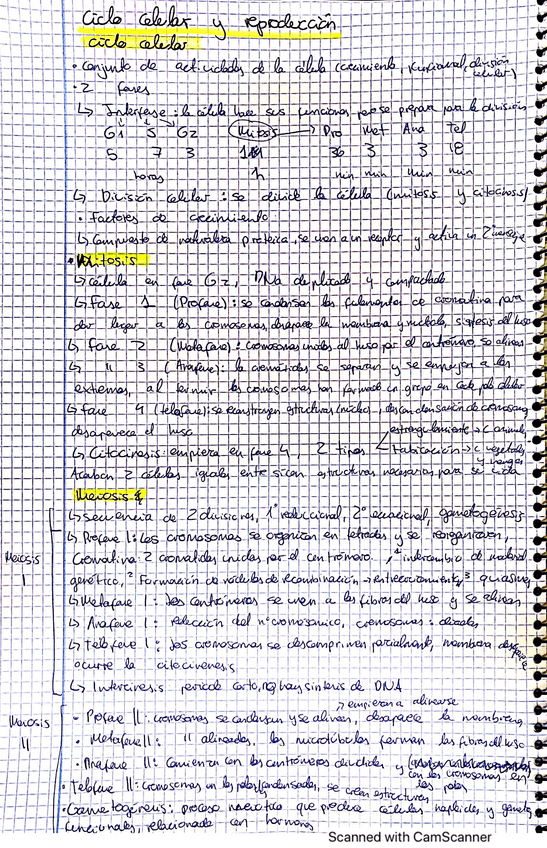 Ciclo celular y reproducción
ciclo celular
• conjunto de actividades de la célula (crecimiento, funcional, división celular)
• 2 fases
↳ Interfase: la célula hace sus funciones para se prepara para la división
G1 S G2 Mitosis → Pro Met Ana Tel
5 7 3 1h 36 3 3 18
horas min min min min
↳ División celular: se divide la célula (mitosis y citocinesis)
• factores de crecimiento
↳ Compuesto de naturaleza proteica, se unen a un receptor y activa un 2
• Mitosis
↳ célula en fase G2, DNA duplicado y compactado
↳ Fase 1 (Profase): se condensan los filamentos de cromatina para
dar lugar a los cromosomas, desaparece la membrana y nucleolo, síntesis del huso
↳ Fase 2 (Metafase): cromosomas unidos al huso por el centrómero, se alinean
↳ " 3 (Anafase): la cromátidas se separan y se empujan a los
extremos, al terminar los cromosomas han formado un grupo en cada polo
↳ fase 4 (telofase): se reconstruyen estructuras (núcleo), descondensación de cromosomas
desaparece el huso
↳ Citocinesis: empieza en fase 4, 2 tipos estrangulamiento → C animales
tabicación → C vegetales y hongos
Acaban 2 células iguales entre sí con estructuras necesarias para su vida
Meiosis
Meiosis I
↳ secuencia de 2 divisiones, 1ª reduccional, 2ª ecuacional, gametogénesis
↳ Profase 1: Los cromosomas se organizan en tetradas y se reorganizan,
Cromatina: 2 cromátidas unidas por el centrómero, 1 intercambio de material
genético, 2 Formación de nódulos de recombinación → entrecruzamiento, 3 quiasmas
↳ Metafase 1: Los centrómeros se unen a las fibras del huso y se alinean
↳ Anafase 1: reducción del nº cromosómico, cromosomas: diadas
↳ Telofase 1: los cromosomas se descomprimen parcialmente, membrana
ocurre la citocinesis
↳ Intercinesis: periodo corto, no hay síntesis de DNA
Meiosis II
→ empiezan a alinearse
• Profase II: cromosomas se condensan y se alinean, desaparece la membrana
• Metafase II: " alineados, los microtúbulos forman las fibras del huso
• Anafase II: Comienza con los centrómeros divididos y con los cromosomas en
los polos
• Telofase II: cromosomas en los polos condensados, se crean estructuras
• Gametogénesis: proceso meiótico que produce células haploides y gametos
funcionales, relacionada con hormonas
Scanned with CamScanner